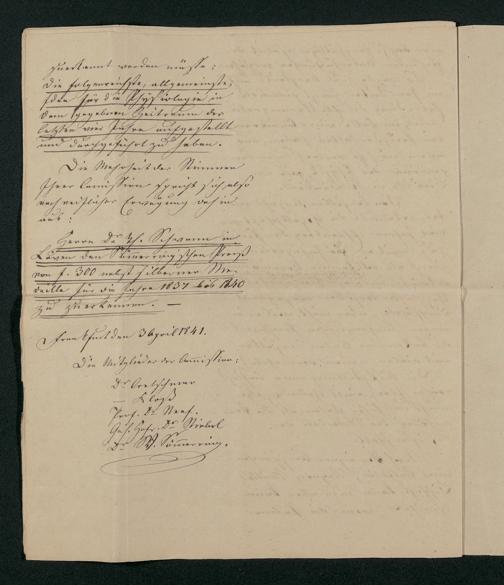 zuerkannt werden müsse:
die folgenreichste, allgemeinste
Idee für die Physiologie in
dem gegebenen Zeitraum der
letzten vier Jahre aufgestellt
und durchgeführt zu haben.
Die Mehrheit der Stimmen
Ihrer Commission spricht sich also
nach reiflicher Erwägung dahin
aus:
Herrn Dr. Th. Schwann in
Löwen den Sömmerring'schen Preis
von f. 300 nebst silberner Me-
daille für die Jahre 1837 bis 1840
zu zuerkennen. —
Frankfurt den 3 April 1841.
Die Mitglieder der Commission:
Dr. Cretzschmar
— Kloß
Prof. Dr. Neef.
Geh. Hofr. Dr. Stiebel
Dr. W. Sömmerring.